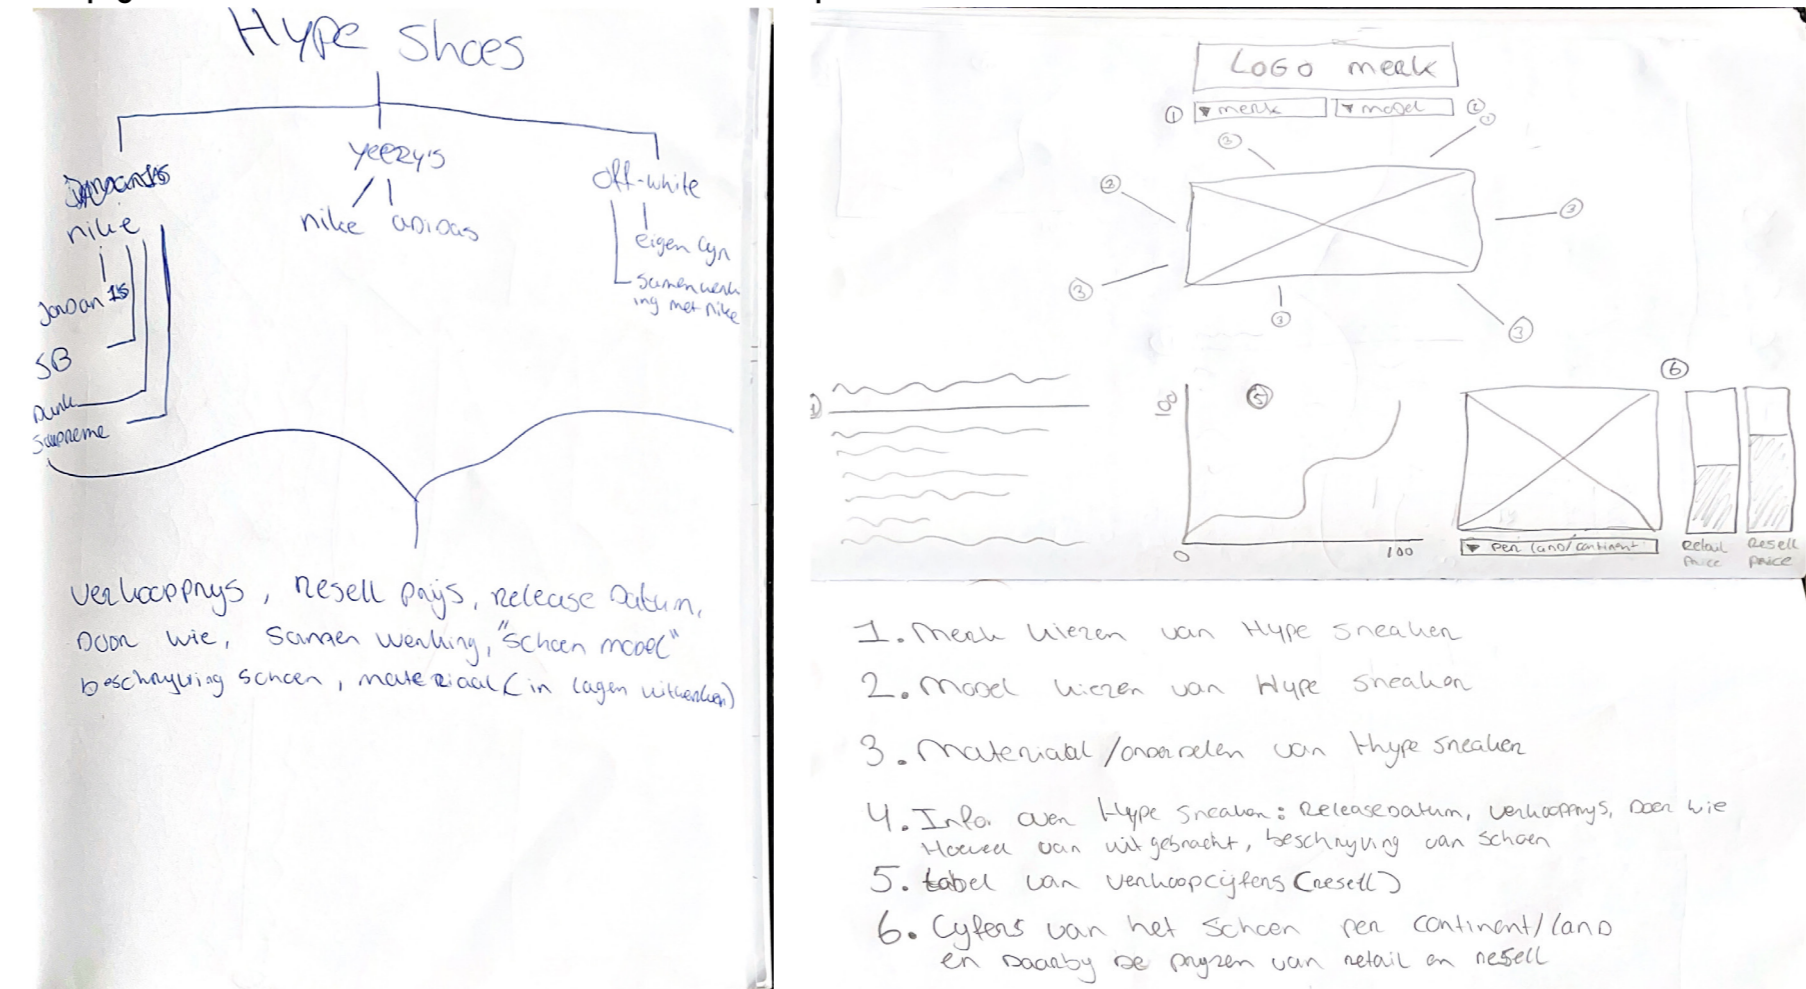 Hype Shoes
nike
Jordan 1s
SB
Dunk
Supreme
yeezy's
nike adidas
off-white
eigen lijn
samenwerk
ing met nike
verkoopprijs, resell prijs, release datum,
Door wie, samen werking, "schoen model"
beschrijving schoen, materiaal (in lagen uitwerken)
LOGO merk
① ▼ merk ▼ model ②
③
②
③
③
③
③
100
⑤
0
100
⑥
▼ per land/continent
Retail
price
Resell
price
1. Merk kiezen van Hype sneaker
2. Model kiezen van Hype sneaker
3. Materiaal/onderdelen van Hype sneaker
4. Info. over Hype sneaker: Releasedatum, verkoopprijs, Door wie
Hoeveel van uitgebracht, beschrijving van schoen
5. tabel van verkoopcijfers (resell)
6. Cijfers van het schoen per continent/land
en daarbij de prijzen van retail en resell